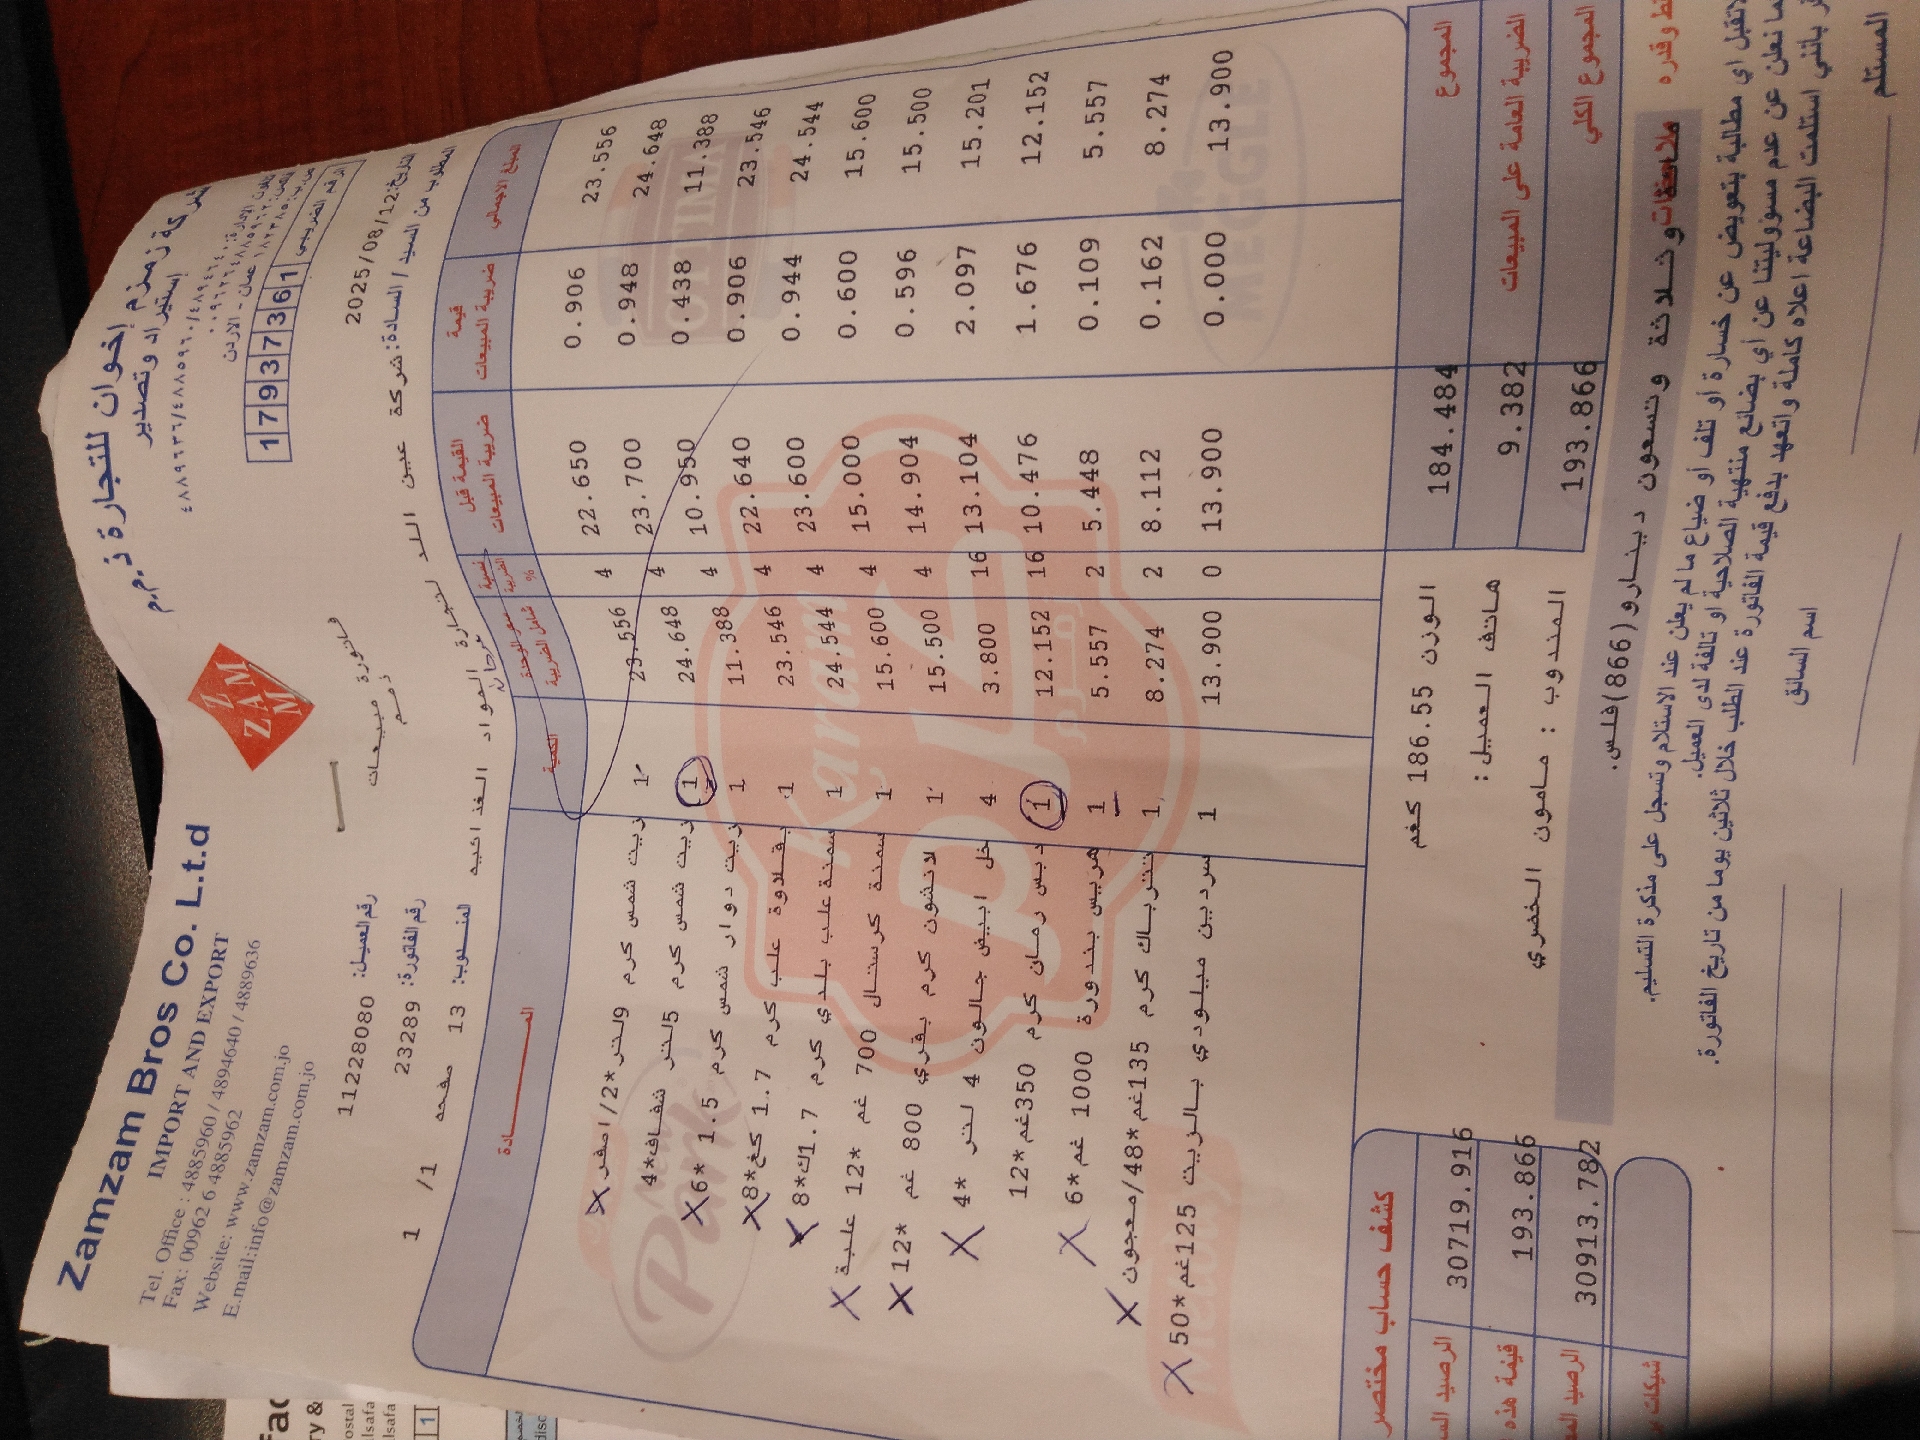 Zamzam Bros Co. L.t.d
IMPORT AND EXPORT
Tel. Office : 4885960 / 4894640 / 4889636
Fax: 00962 6 4885962
Website: www.zamzam.com.jo
E.mail:info@zamzam.com.jo
Z
ZAM
M
شركة زمزم إخوان للتجارة ذ.م.م
إستيراد وتصدير
الرقم الضريبي 1 7 9 3 7 3 6 1
فاتورة مبيعات
ذمم
التاريخ: 2025/08/12
رقم العميل: 11228080
رقم الفاتورة: 23289
المندوب: 13 صفحه 1/ 1
المطلوب من السيد / السادة: شركة عين اللد لتجارة المواد الغذائيه
المـــــــادة الكمية سعر الوحدة شامل الضريبة نسبة الضريبة % القيمة قبل ضريبة المبيعات قيمة ضريبة المبيعات المبلغ الاجمالي
زيت شمس كرم 9لتر*2/اصفر 1 23.556 4 22.650 0.906 23.556
زيت شمس كرم 5لتر شفاف*4 1 24.648 4 23.700 0.948 24.648
زيت دوار شمس كرم 1.5 *6 1 11.388 4 10.950 0.438 11.388
بقلاوة علب كرم 1.7 كغ*8 1 23.546 4 22.640 0.906 23.546
سمنة علب بلدي كرم 1.7ك*8 1 24.544 4 23.600 0.944 24.544
سمنة كرستال 700 غم *12 علبة 1 15.600 4 15.000 0.600 15.600
لانشون كرم بقري 800 غم *12 1 15.500 4 14.904 0.596 15.500
خل ابيض جالون 4 لتر *4 4 3.800 16 13.104 2.097 15.201
دبس رمان كرم 350غم*12 1 12.152 16 10.476 1.676 12.152
هريس بندورة 1000 غم *6 1 5.557 2 5.448 0.109 5.557
تتراباك كرم 135غم*48/معجون 1 8.274 2 8.112 0.162 8.274
سردين ميلودي بالزيت 125غم*50 1 13.900 0 13.900 0.000 13.900
الوزن 186.55 كغم
هاتف العميل :
المندوب : مامون الخمري
184.484 المجموع
9.382 الضريبة العامة على المبيعات
193.866 المجموع الكلي
كشف حساب مختصر
30719.916
قيمة هذه 193.866
30913.782
شيكات
وقدره مائة وثلاثة وتسعون دينار و(866)فلس.
ملاحظات
لاتقبل اي مطالبة بتعويض عن خسارة أو تلف أو ضياع ما لم يعلن عند الاستلام وتسجل على مذكرة التسليم.
كما نعلن عن عدم مسؤوليتنا عن أي بضائع منتهية الصلاحية أو تالفة لدى العميل.
بانني استلمت البضاعة اعلاه كاملة واتعهد بدفع قيمة الفاتورة عند الطلب خلال ثلاثين يوما من تاريخ الفاتورة.
المستلم
اسم السائق
Karam
Park
MEGGLE